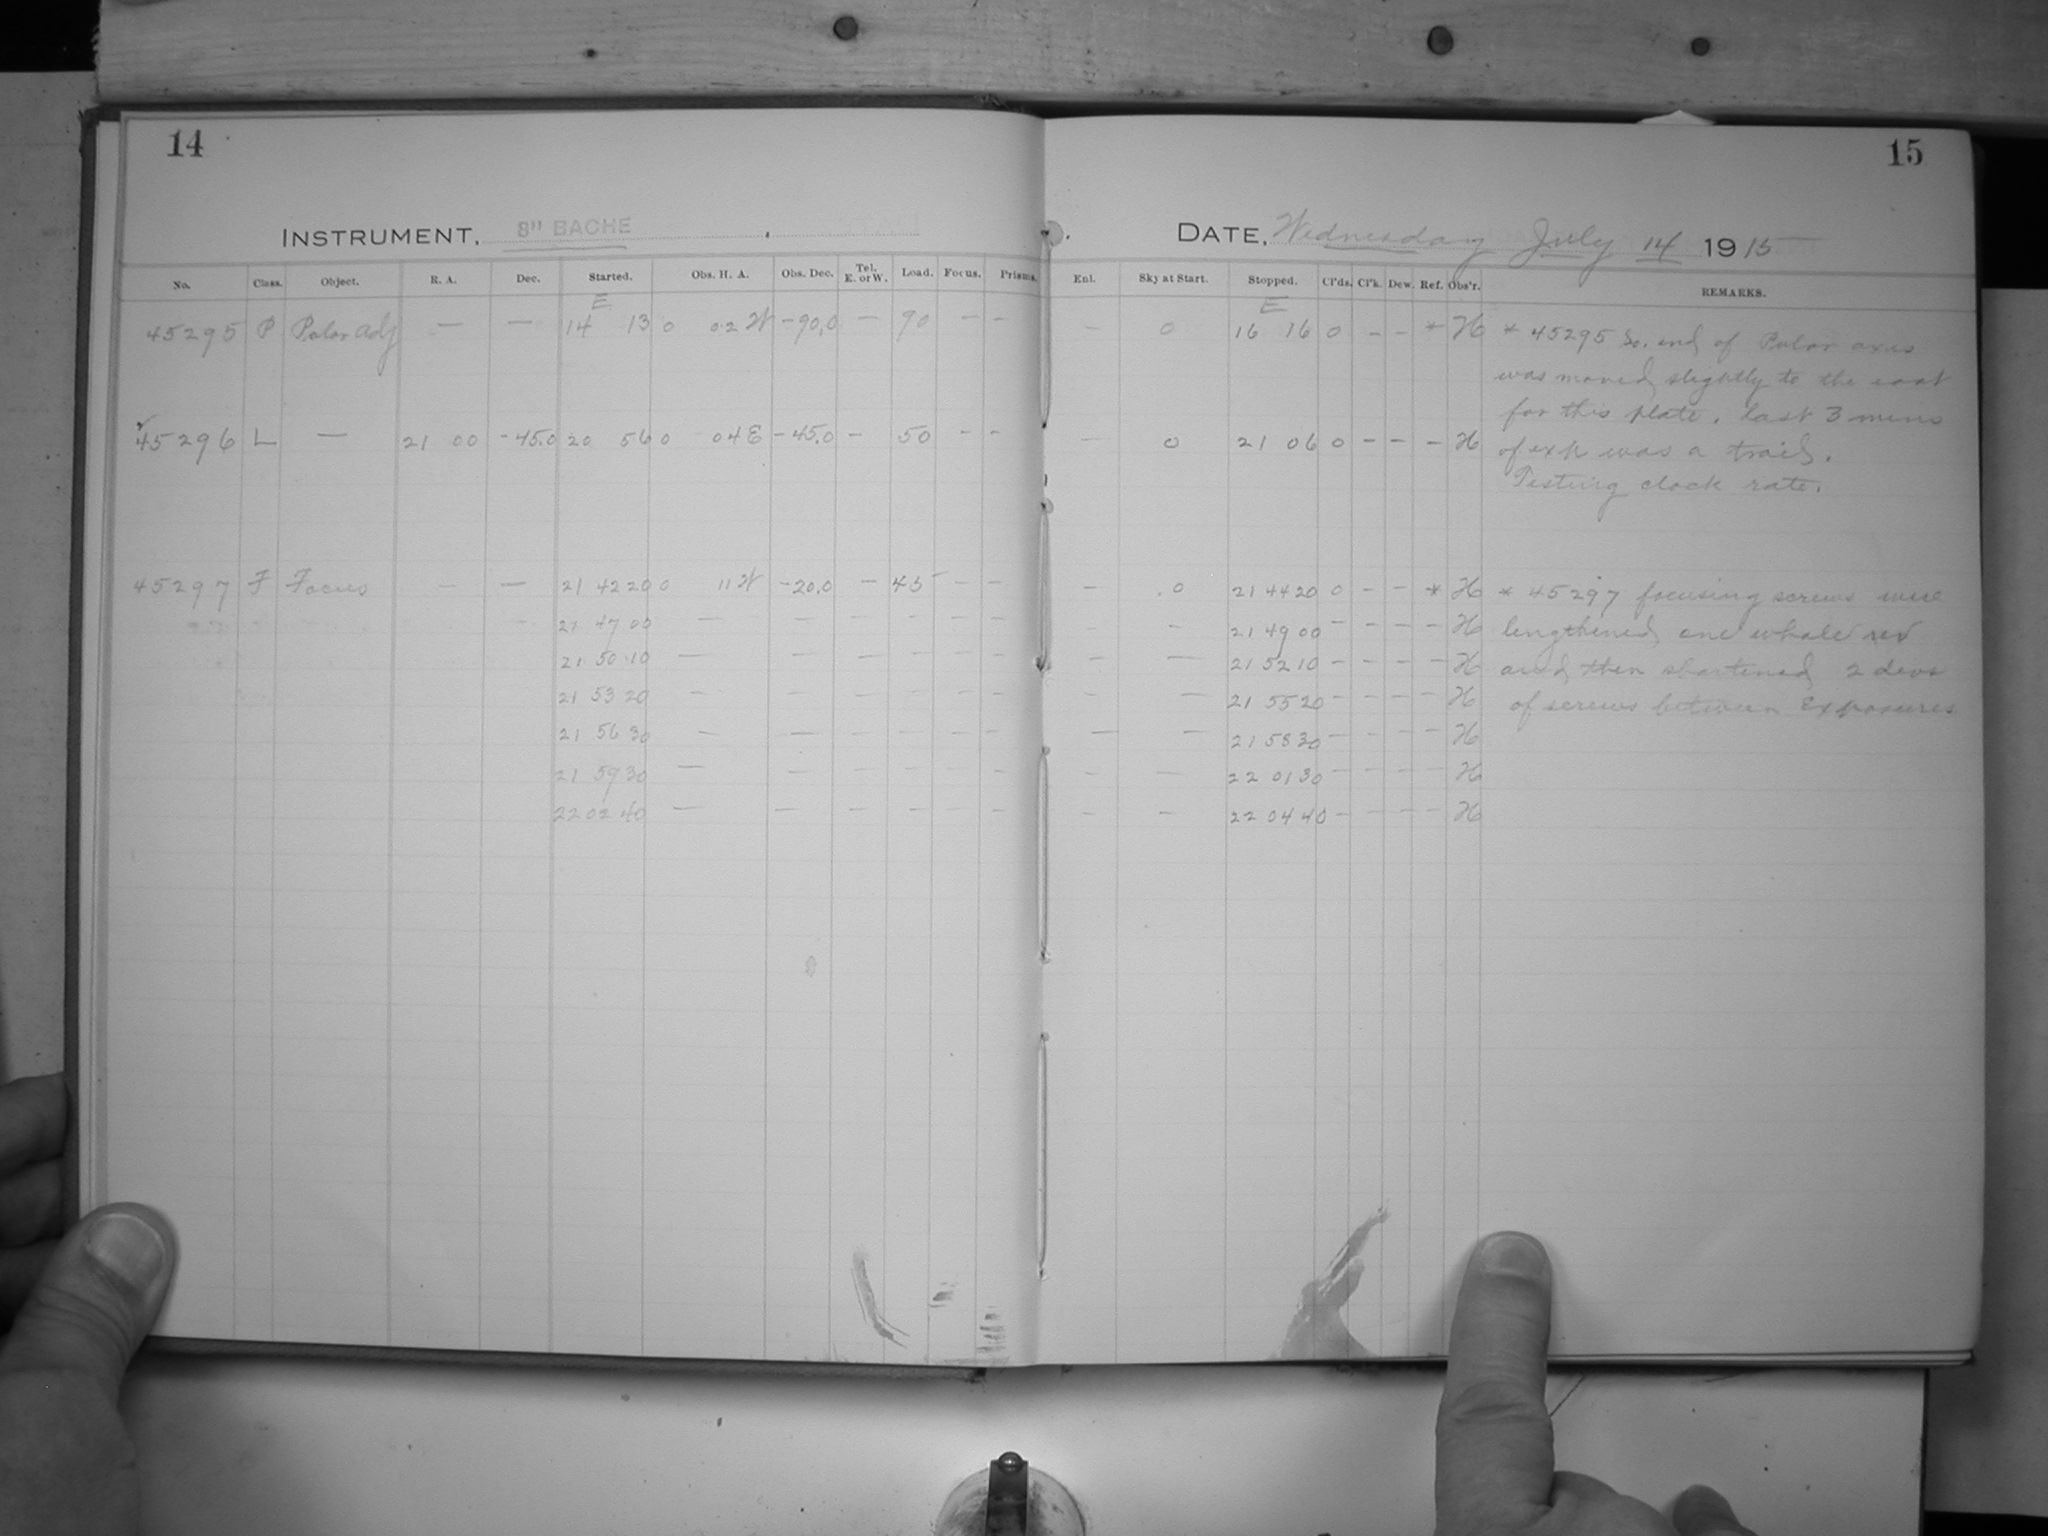 14
15
INSTRUMENT, 8" BACHE
DATE, Wednesday July 14 1915
No. Class. Object. R. A. Dec. Started. Obs. H. A. Obs. Dec. Tel. E. or W. Load. Focus. Prisms. Enl. Sky at Start. Stopped. Cl'ds. Cl'k. Dew. Ref. Obs'r. REMARKS.
E E
45295 P Polar Adj — — 14 13 0 02 W -90,0 — 90 - - - 0 16 16 0 - - * H * 45295 So. end of Polar axis
was moved slightly to the east
for this plate. last 3 mins
45296 L — 21 00 -45.0 20 56 0 04 E -45.0 - 50 - - — 0 21 06 0 - - - H of exp was a trail.
Testing clock rate.
45297 F Focus - — 21 42 20 0 11 W -20.0 - 45 - - - 0 21 44 20 0 - - * H * 45297 focusing screws were
21 47 00 — — — - - - - - 21 49 00 - - - - H lengthened one whole rev
21 50 10 — — — - - - - — 21 52 10 - - - - H and then shortened 2 devs
21 53 20 — — — - - - - — 21 55 20 - - - - H of screws between Exposures
21 56 30 — — — - - - — — 21 58 30 - - - - H
21 59 30 — — — - - - - — 22 01 30 - - - - H
22 02 40 — — — - - - - - 22 04 40 - - - - H